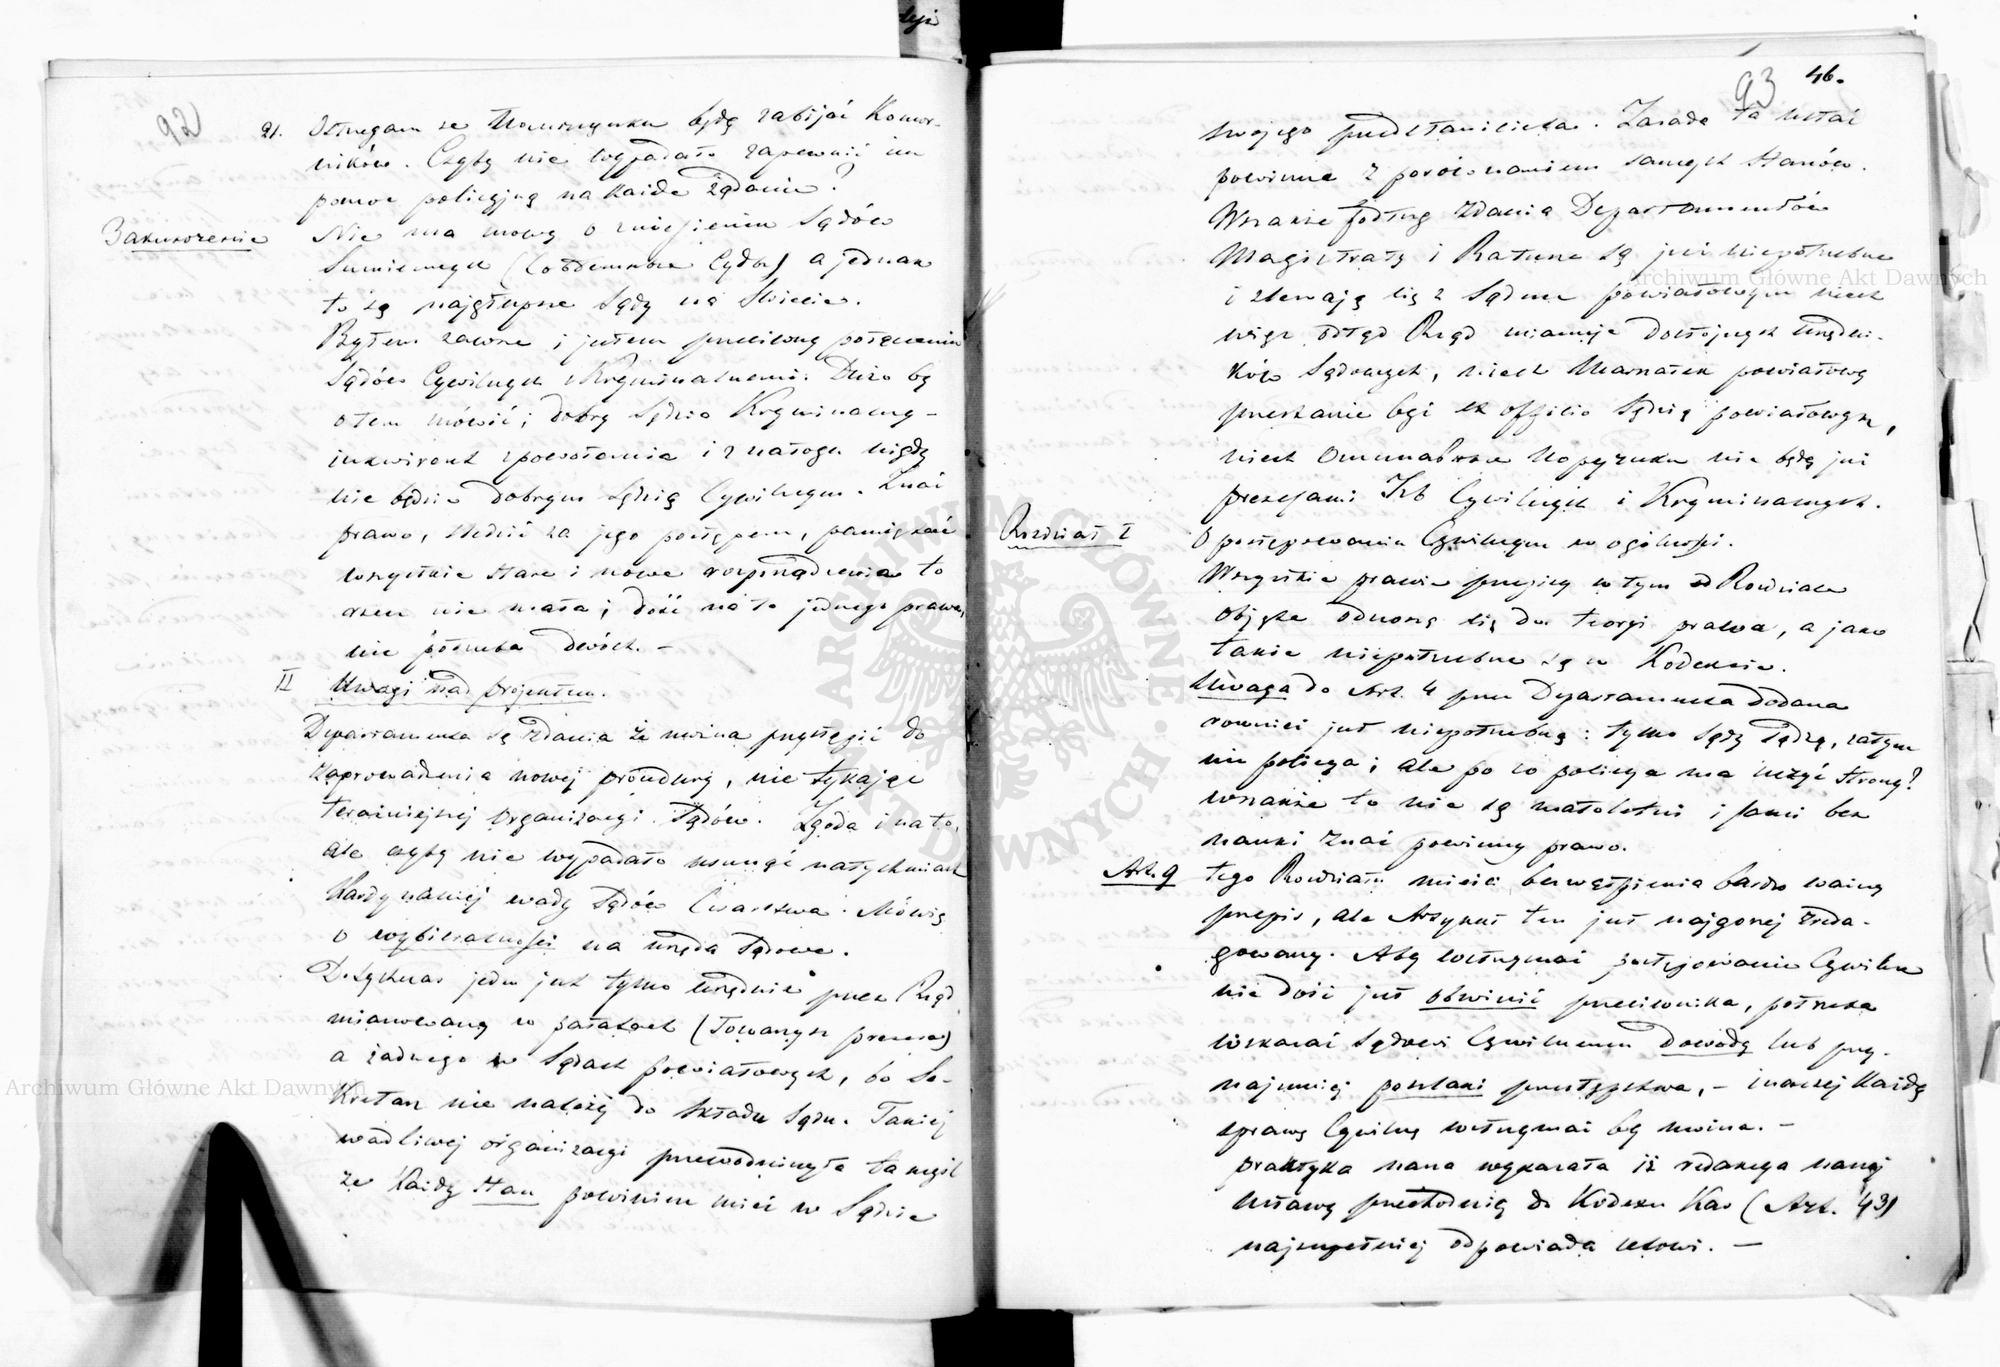 92
21. Ostrzegam że Ukraszynku będą zabijać Komor-
ników. Czyby nie wypadało zapewnić im
pomoc policyjną na każde żądanie?
Zakończenie Nie ma mowy o zniesieniu Sądów
Sumiennych a jednak
to są najgłupsze Sądy na Świecie.
Byłem zawsze i jestem przeciwny połączeniu
Sądów Cywilnych i Kryminalnemi. Dużo by
o tem mówić; dobry Sędzia Kryminalny -
inkwirent z powołania i z nałogu nigdy
nie będzie dobrym Sędzią Cywilnym. Znać
prawo, śledzić za jego postępem, pamiętać
wszystkie stare i nowe rozporządzenia to
rzecz nie mała; dość na to jednego prawa,
nie potrzeba dwóch. -
II Uwagi nad projektem.
Departamenta są zdania że można przystąpić do
zaprowadzenia nowej procedury, nie tykając
teraźniejszej organizacyi Sądów. Zgoda i na to,
ale czyby nie wypadało usunąć natychmiast
Kardynalnej wady Sądów Cesarstwa. Mówię
o wybieralności na urzęda Sądowe.
Dotychczas jeden jest tylko urzędnik przez Rząd
mianowany w pałatach (Towarzysz prezesa)
a żadnego w Sądach powiatowych, bo Se-
kretarz nie należy do składu Sądu. Takiej
wadliwej organizacyi przewodniczyła ta myśl
że każdy stan powinien mieć w Sądzie
93 46.
swojego przedstawiciela. Zasada ta ustać
powinna z porównaniem samych stanów.
Wszakże podług zdania Departamentów
Magistraty i Ratusze są już niepotrzebne
i zlewają się z Sądem powiatowym niech
więc odtąd Rząd mianuje dostojnych urzędni-
ków Sądowych, niech Marszałek powiatowy
przestanie być ex officio Sędzią powiatowym,
niech nie będą już
prezesami Izb Cywilnych i Kryminalnych.
Rozdział I O postępowaniu Cywilnym w ogólności.
Wszystkie prawie przepisy w tym Rozdziale
objęte odnoszą się do teoryi prawa, a jako
takie niepotrzebne są w Kodexie.
Uwaga do Art. 4 przez Departamenta dodana
również jest niepotrzebną: tylko Sądy sądzą, zatym
nie policya; ale po co policya ma uczyć strony?
wszakże to nie są małoletni i sami bez
nauki znać powinny prawo.
Art. 9 tego Rozdziału mieści bezwątpienia bardzo ważny
przepis, ale Artykuł ten jest najgorzej zreda-
gowany. Aby wstrzymać postępowanie Cywilne
nie dość jest obwinić przeciwnika, potrzeba
wskazać Sądowi Cywilnemu dowody lub przy-
najmniej poszlaki przestępstwa, - inaczej każdą
sprawę Cywilną wstrzymać by można. -
praktyka nasza wykazała iż redakcya naszej
ustawy przechodniej do Kodexu Kar (Art. 43)
najzupełniej odpowiada celowi. -